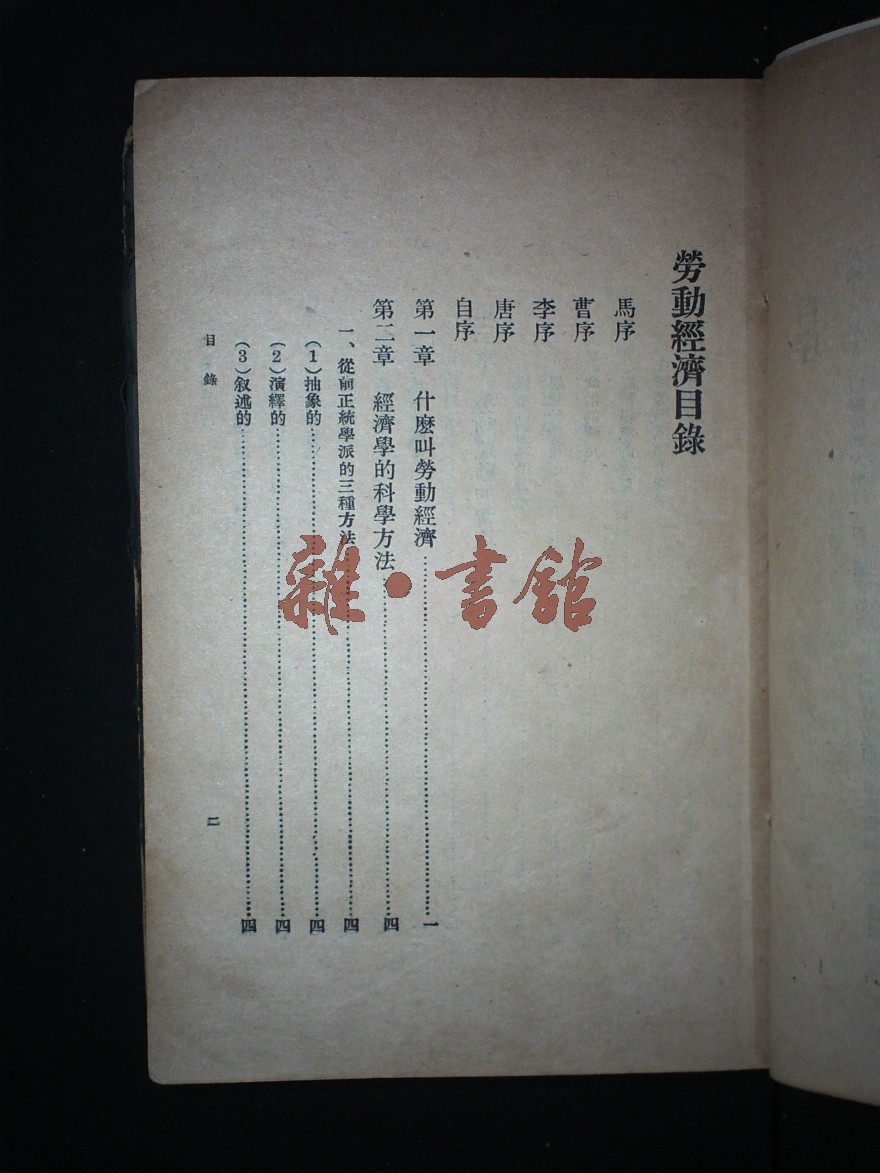 勞動經濟目錄
馬序
曹序
李序
唐序
自序
第一章 什麽叫勞動經濟……一
第二章 經濟學的科學方法……四
一、從前正統學派的三種方法……四
(1)抽象的……四
(2)演繹的……四
(3)叙述的……四
目錄 二
雜·書館